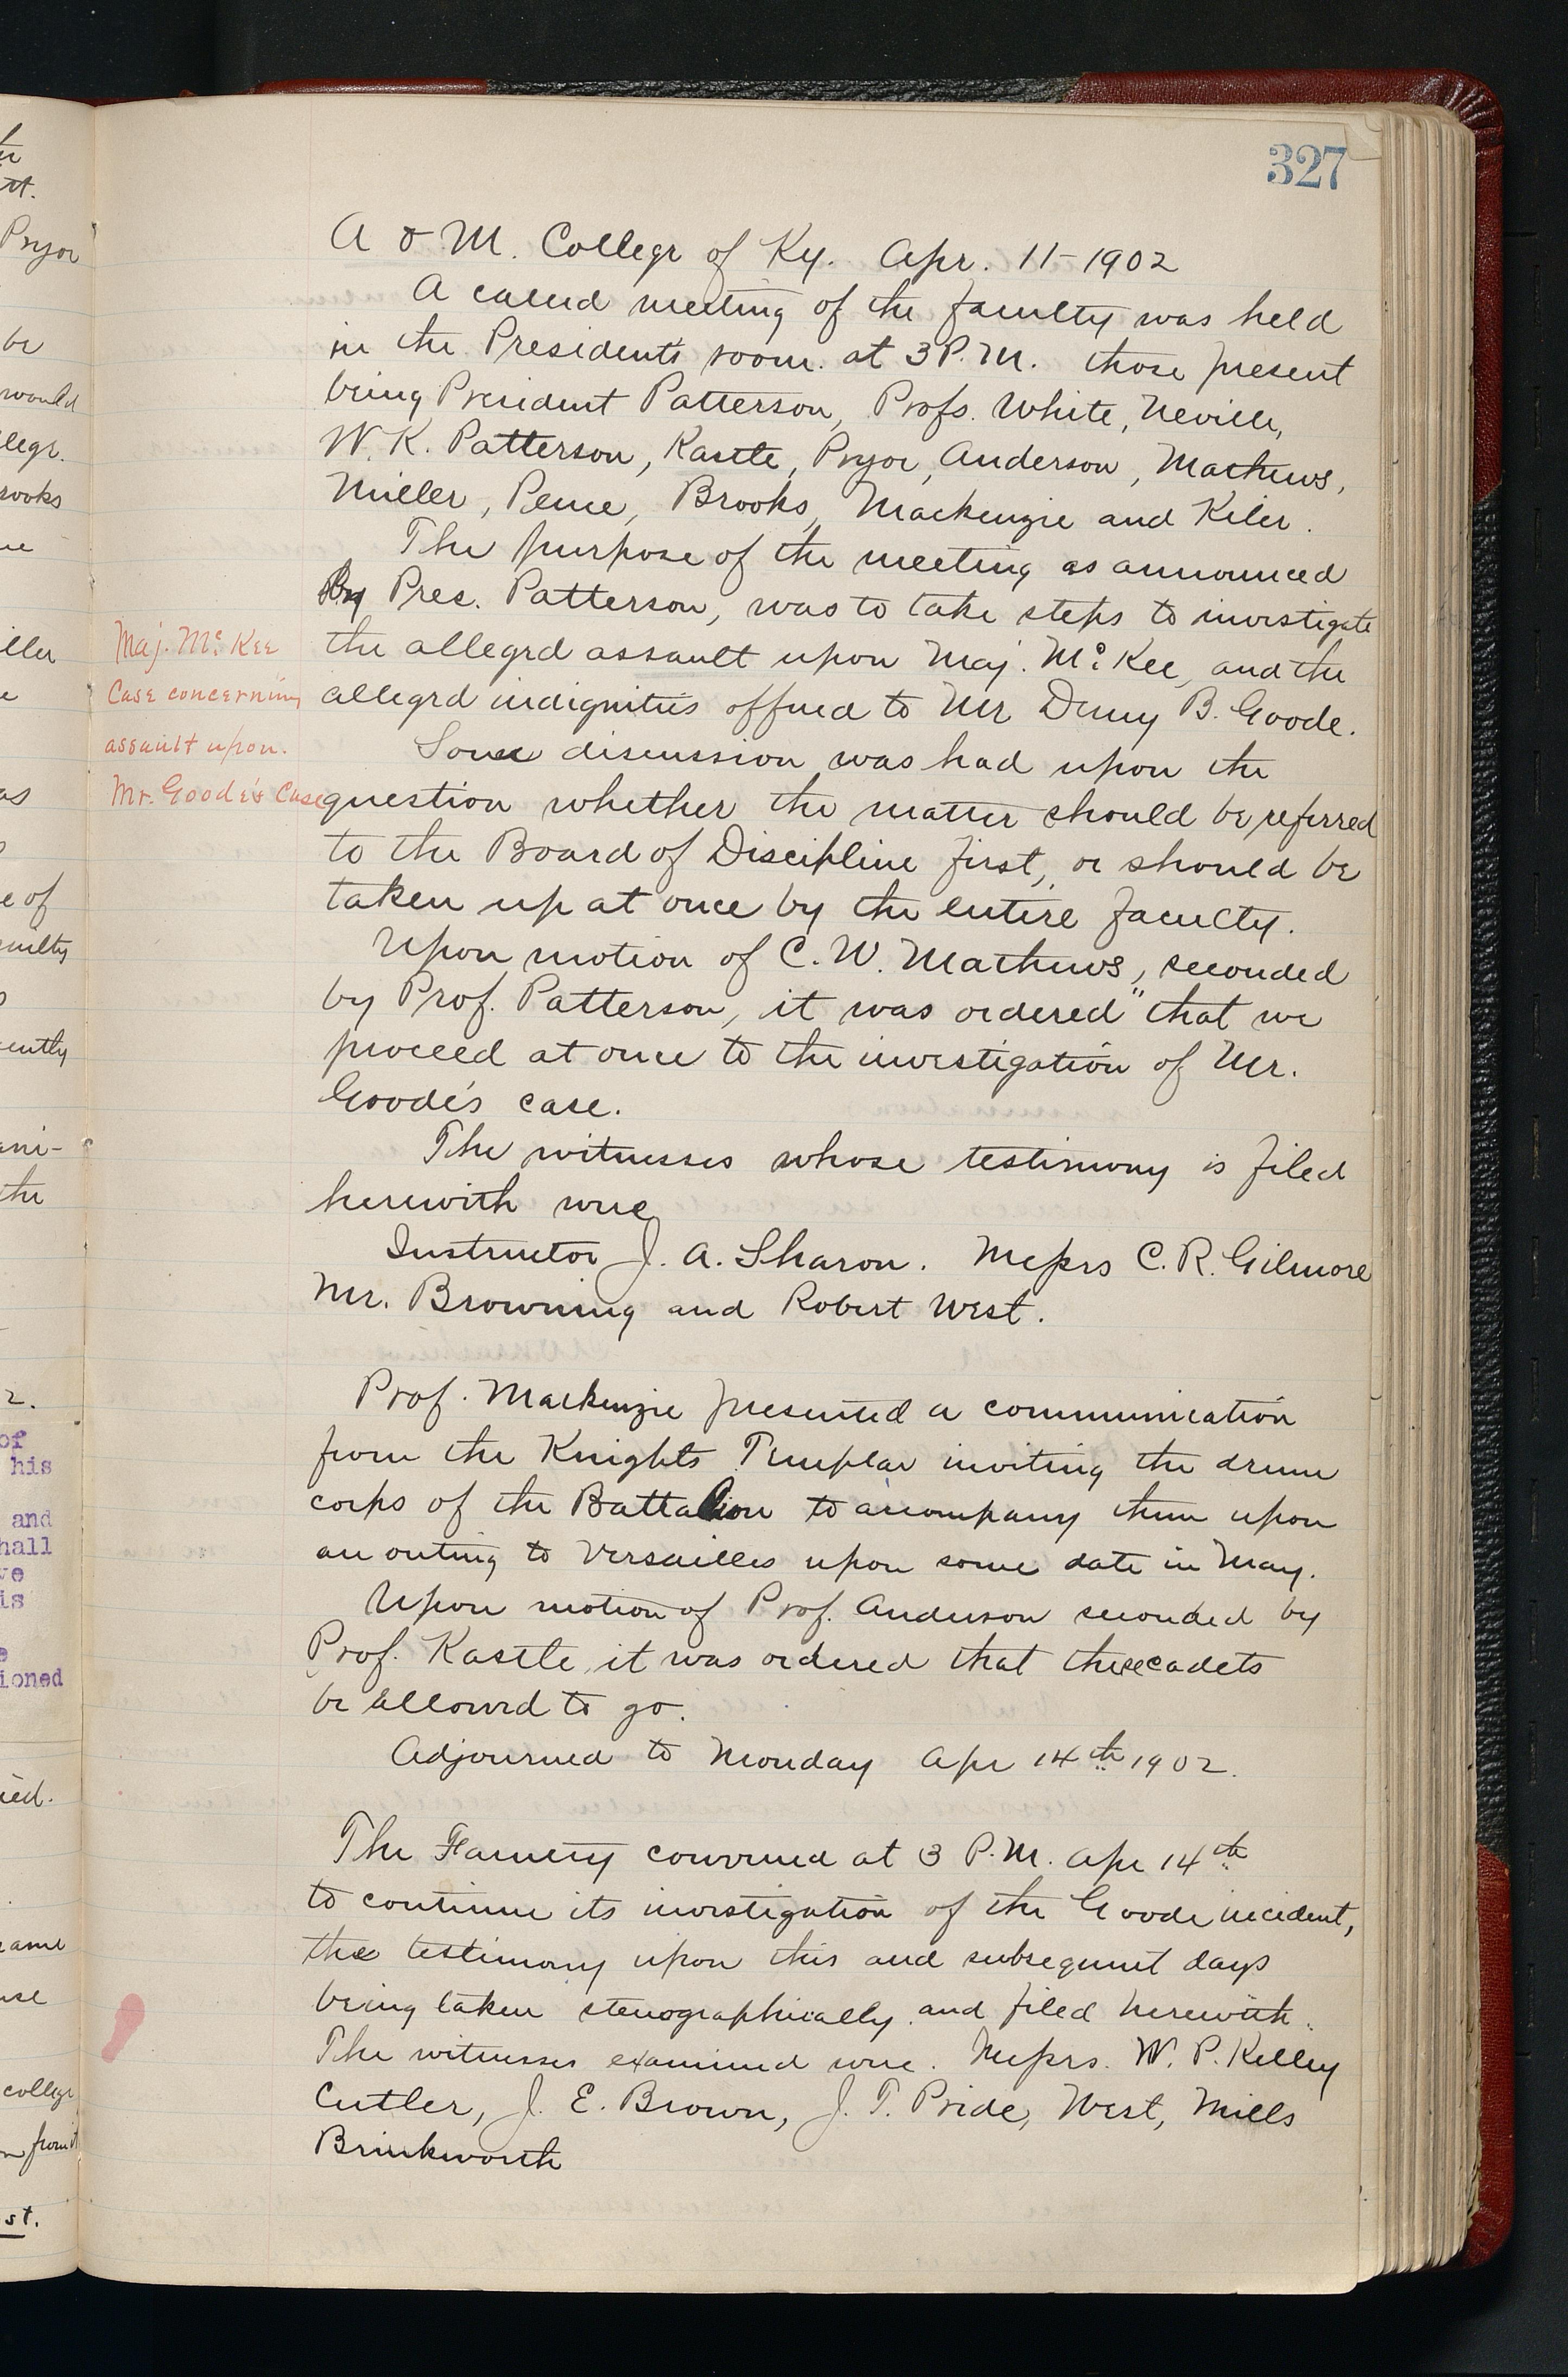 327
A & M. College of Ky. Apr. 11-1902
A called meeting of the faculty was held
in the President's room. at 3 P.M. those present
being President Patterson, Profs. White, Neville,
W. K. Patterson, Kastle, Pryor, Anderson, Mathews,
Miller, Pence, Brooks, Mackenzie and Kiler.
The purpose of the meeting as announced
by Pres. Patterson, was to take steps to investigate
the alleged assault upon Maj. Mc Kee, and the
alleged indignities offered to Mr Denny B. Goode.
Maj. Mc Kee
Case concerning
assault upon.
Mr. Goode's Case
Some discussion was had upon the
question whether the matter should be referred
to the Board of Discipline first, or should be
taken up at once by the entire faculty.
Upon motion of C. W. Mathews, seconded
by Prof. Patterson, it was ordered "that we
proceed at once to the investigation of Mr.
Goode's case.
The witnesses whose testimony is filed
herewith were
Instructor J. A. Sharon. Messrs C. R. Gilmore
Mr. Browning and Robert West.
Prof. Mackenzie presented a communication
from the Knights Templar inviting the drum
corps of the Battalion to accompany them upon
an outing to Versailles upon some date in May.
Upon motion of Prof. Anderson seconded by
Prof. Kastle, it was ordered that these cadets
be allowed to go.
Adjourned to Monday Apr 14th 1902.
The Faculty convened at 3 P.M. Apr 14th
to continue its investigation of the Goode incident,
the testimony upon this and subsequent days
being taken stenographically and filed herewith.
The witnesses examined were. Messrs. W. P. Kelley
Cutler, J. E. Brown, J. T. Pride, West, Mills
Brinkworth